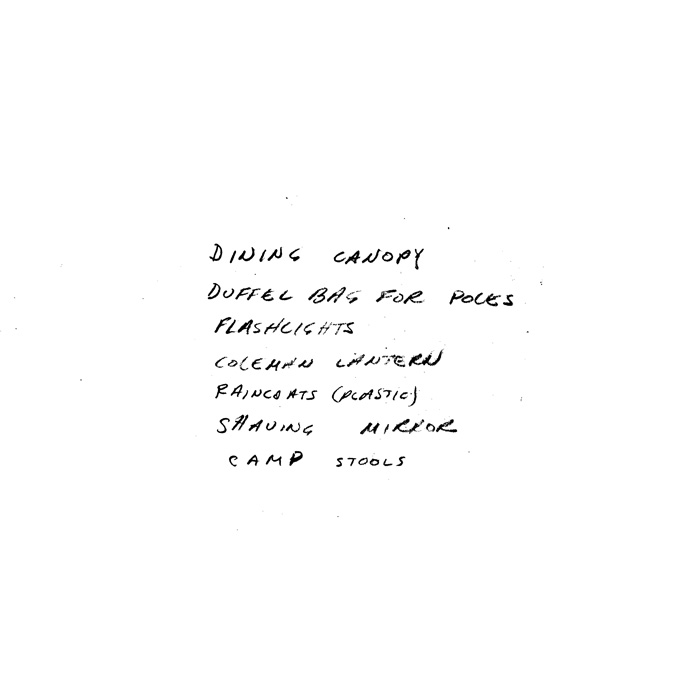 DINING CANOPY
DUFFEL BAG FOR POLES
FLASHLIGHTS
COLEMAN LANTERN
RAINCOATS (PLASTIC)
SHAVING MIRROR
CAMP STOOLS